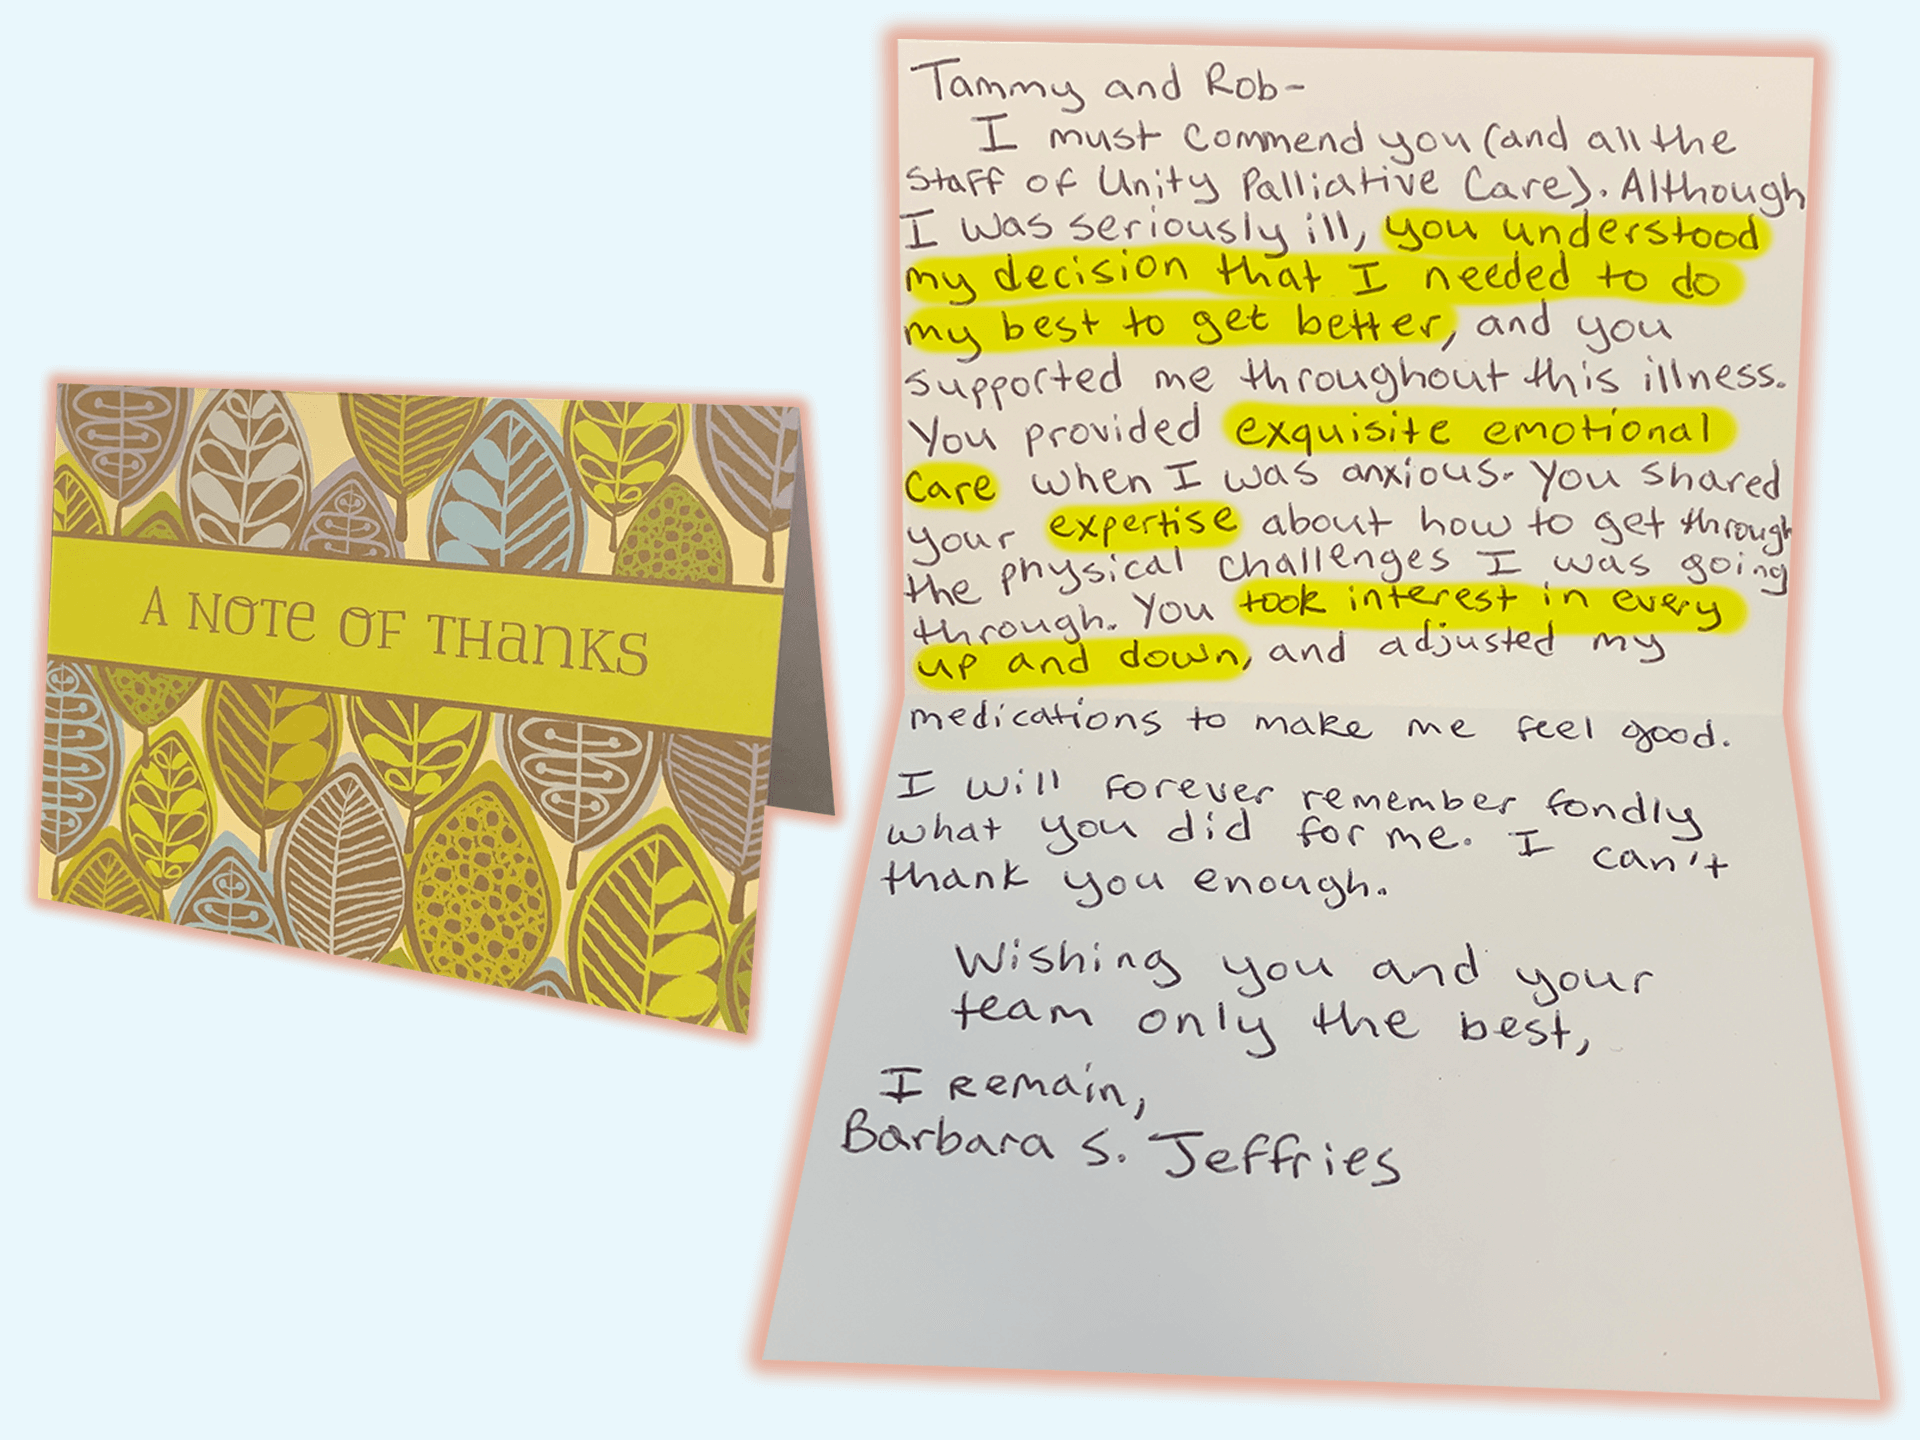 A NOTE OF THANKS
Tammy and Rob-
I must commend you (and all the
staff of Unity Palliative Care). Although
I was seriously ill, you understood
my decision that I needed to do
my best to get better, and you
supported me throughout this illness.
You provided exquisite emotional
care when I was anxious. You shared
your expertise about how to get through
the physical challenges I was going
through. You took interest in every
up and down, and adjusted my
medications to make me feel good.
I will forever remember fondly
what you did for me. I can't
thank you enough.
Wishing you and your
team only the best,
I remain,
Barbara S. Jeffries